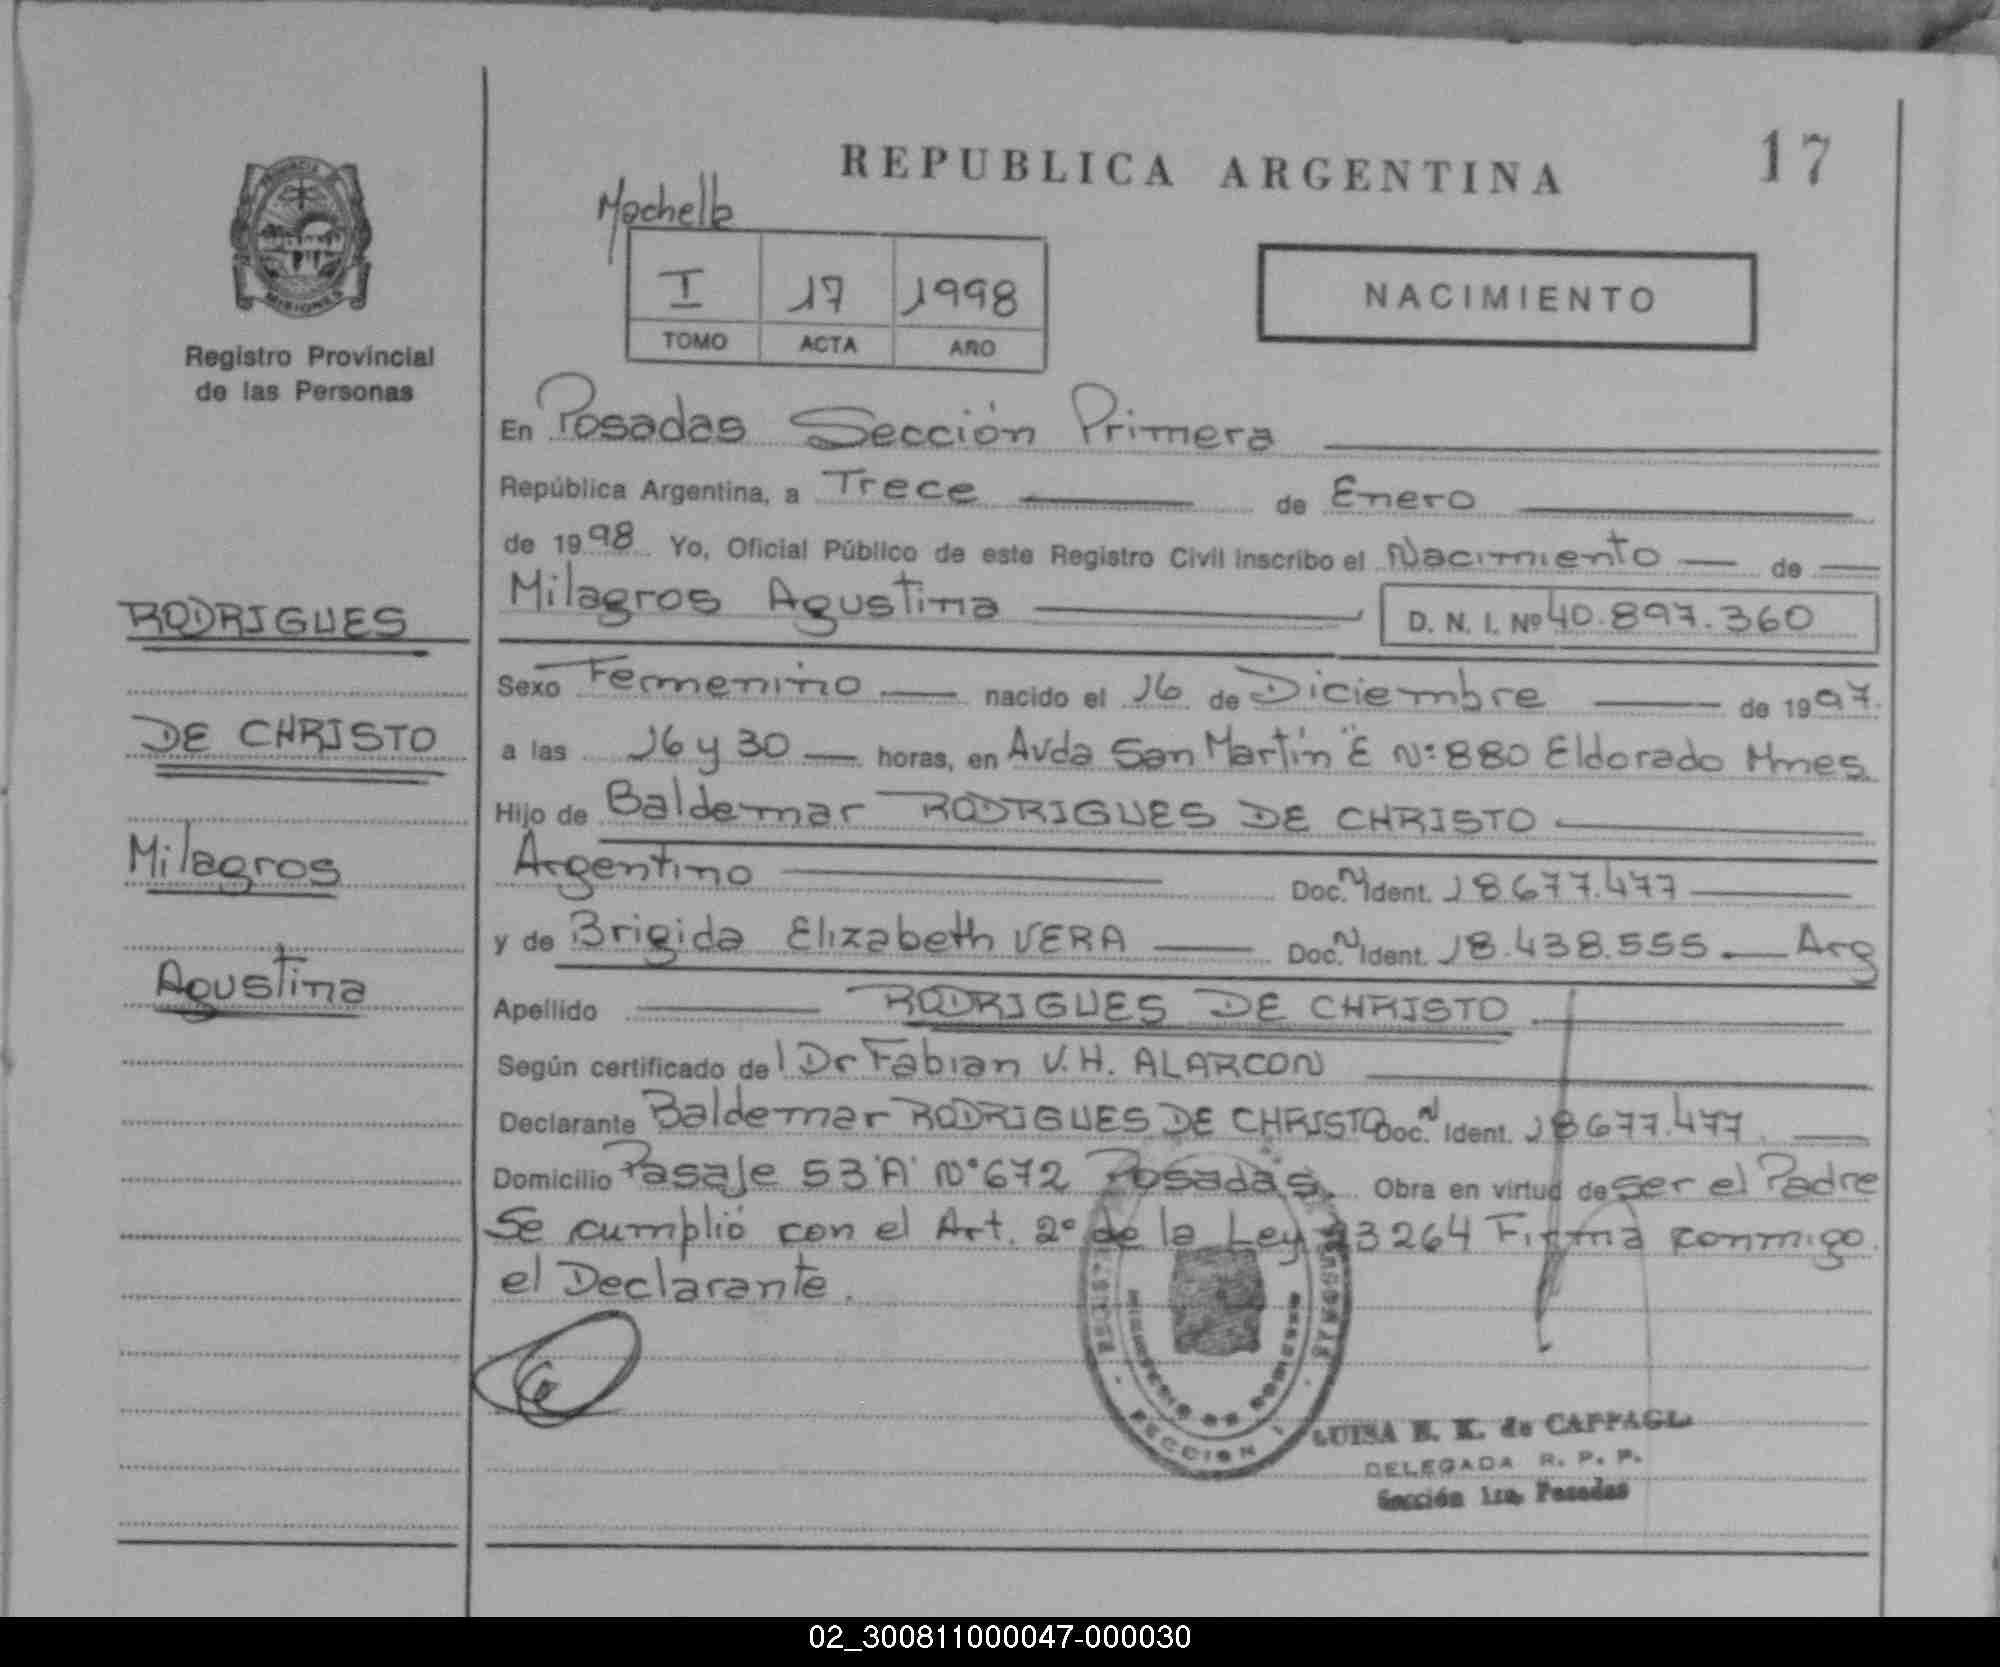 REPUBLICA ARGENTINA
17
PROVINCIA
MISIONES
Registro Provincial
de las Personas
I 17 1998
TOMO ACTA AÑO
NACIMIENTO
En Posadas Sección Primera
República Argentina, a Trece de Enero
de 1998 Yo, Oficial Público de este Registro Civil inscribo el Nacimiento de
Milagros Agustina D. N. I. Nº 40.897.360
RODRIGUES
DE CHRISTO
Milagros
Agustina
Sexo Femenino nacido el 16 de Diciembre de 1997.
a las 16 y 30 horas, en Avda San Martín "E" Nº 880 Eldorado Mnes.
Hijo de Baldemar RODRIGUES DE CHRISTO
Argentino Doc. N Ident. 18.677.477
y de Brigida Elizabeth VERA Doc. N Ident. 18.438.555 Arg
Apellido RODRIGUES DE CHRISTO
Según certificado del Dr Fabian V.H. ALARCON
Declarante Baldemar RODRIGUES DE CHRISTO Doc. N Ident. 18677.477
Domicilio Pasaje 53 "A" Nº 672 Posadas. Obra en virtud de ser el Padre
Se cumplió con el Art. 2º de la Ley 23264 Firma conmigo
el Declarante.
MINISTERIO DE GOBIERNO
SECCION 1
LUISA E. K. de CAFFAGL
DELEGADA R. P. P.
Sección 1ra. Posadas
02_300811000047-000030